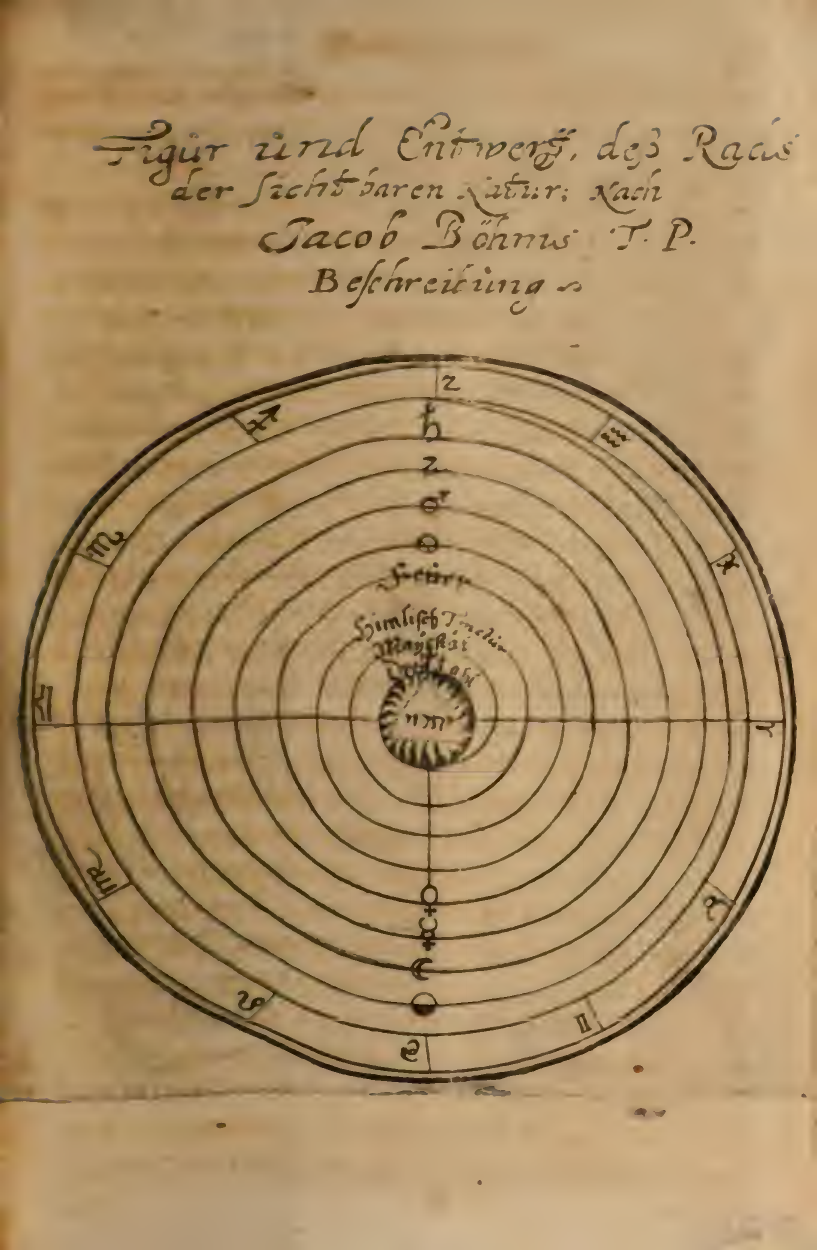 Figŭr ŭnd Entwerff, deß Radis
der sichtbaren Natur; Nach
Jacob Böhms T. P.
Beschreibŭng
♑
♐
♒
♄
♃
♂
♏
♓
Feŭer
Himlisch Tinctur
♎
♈
♍
♉
♀
☿
☾
♌
♊
♋